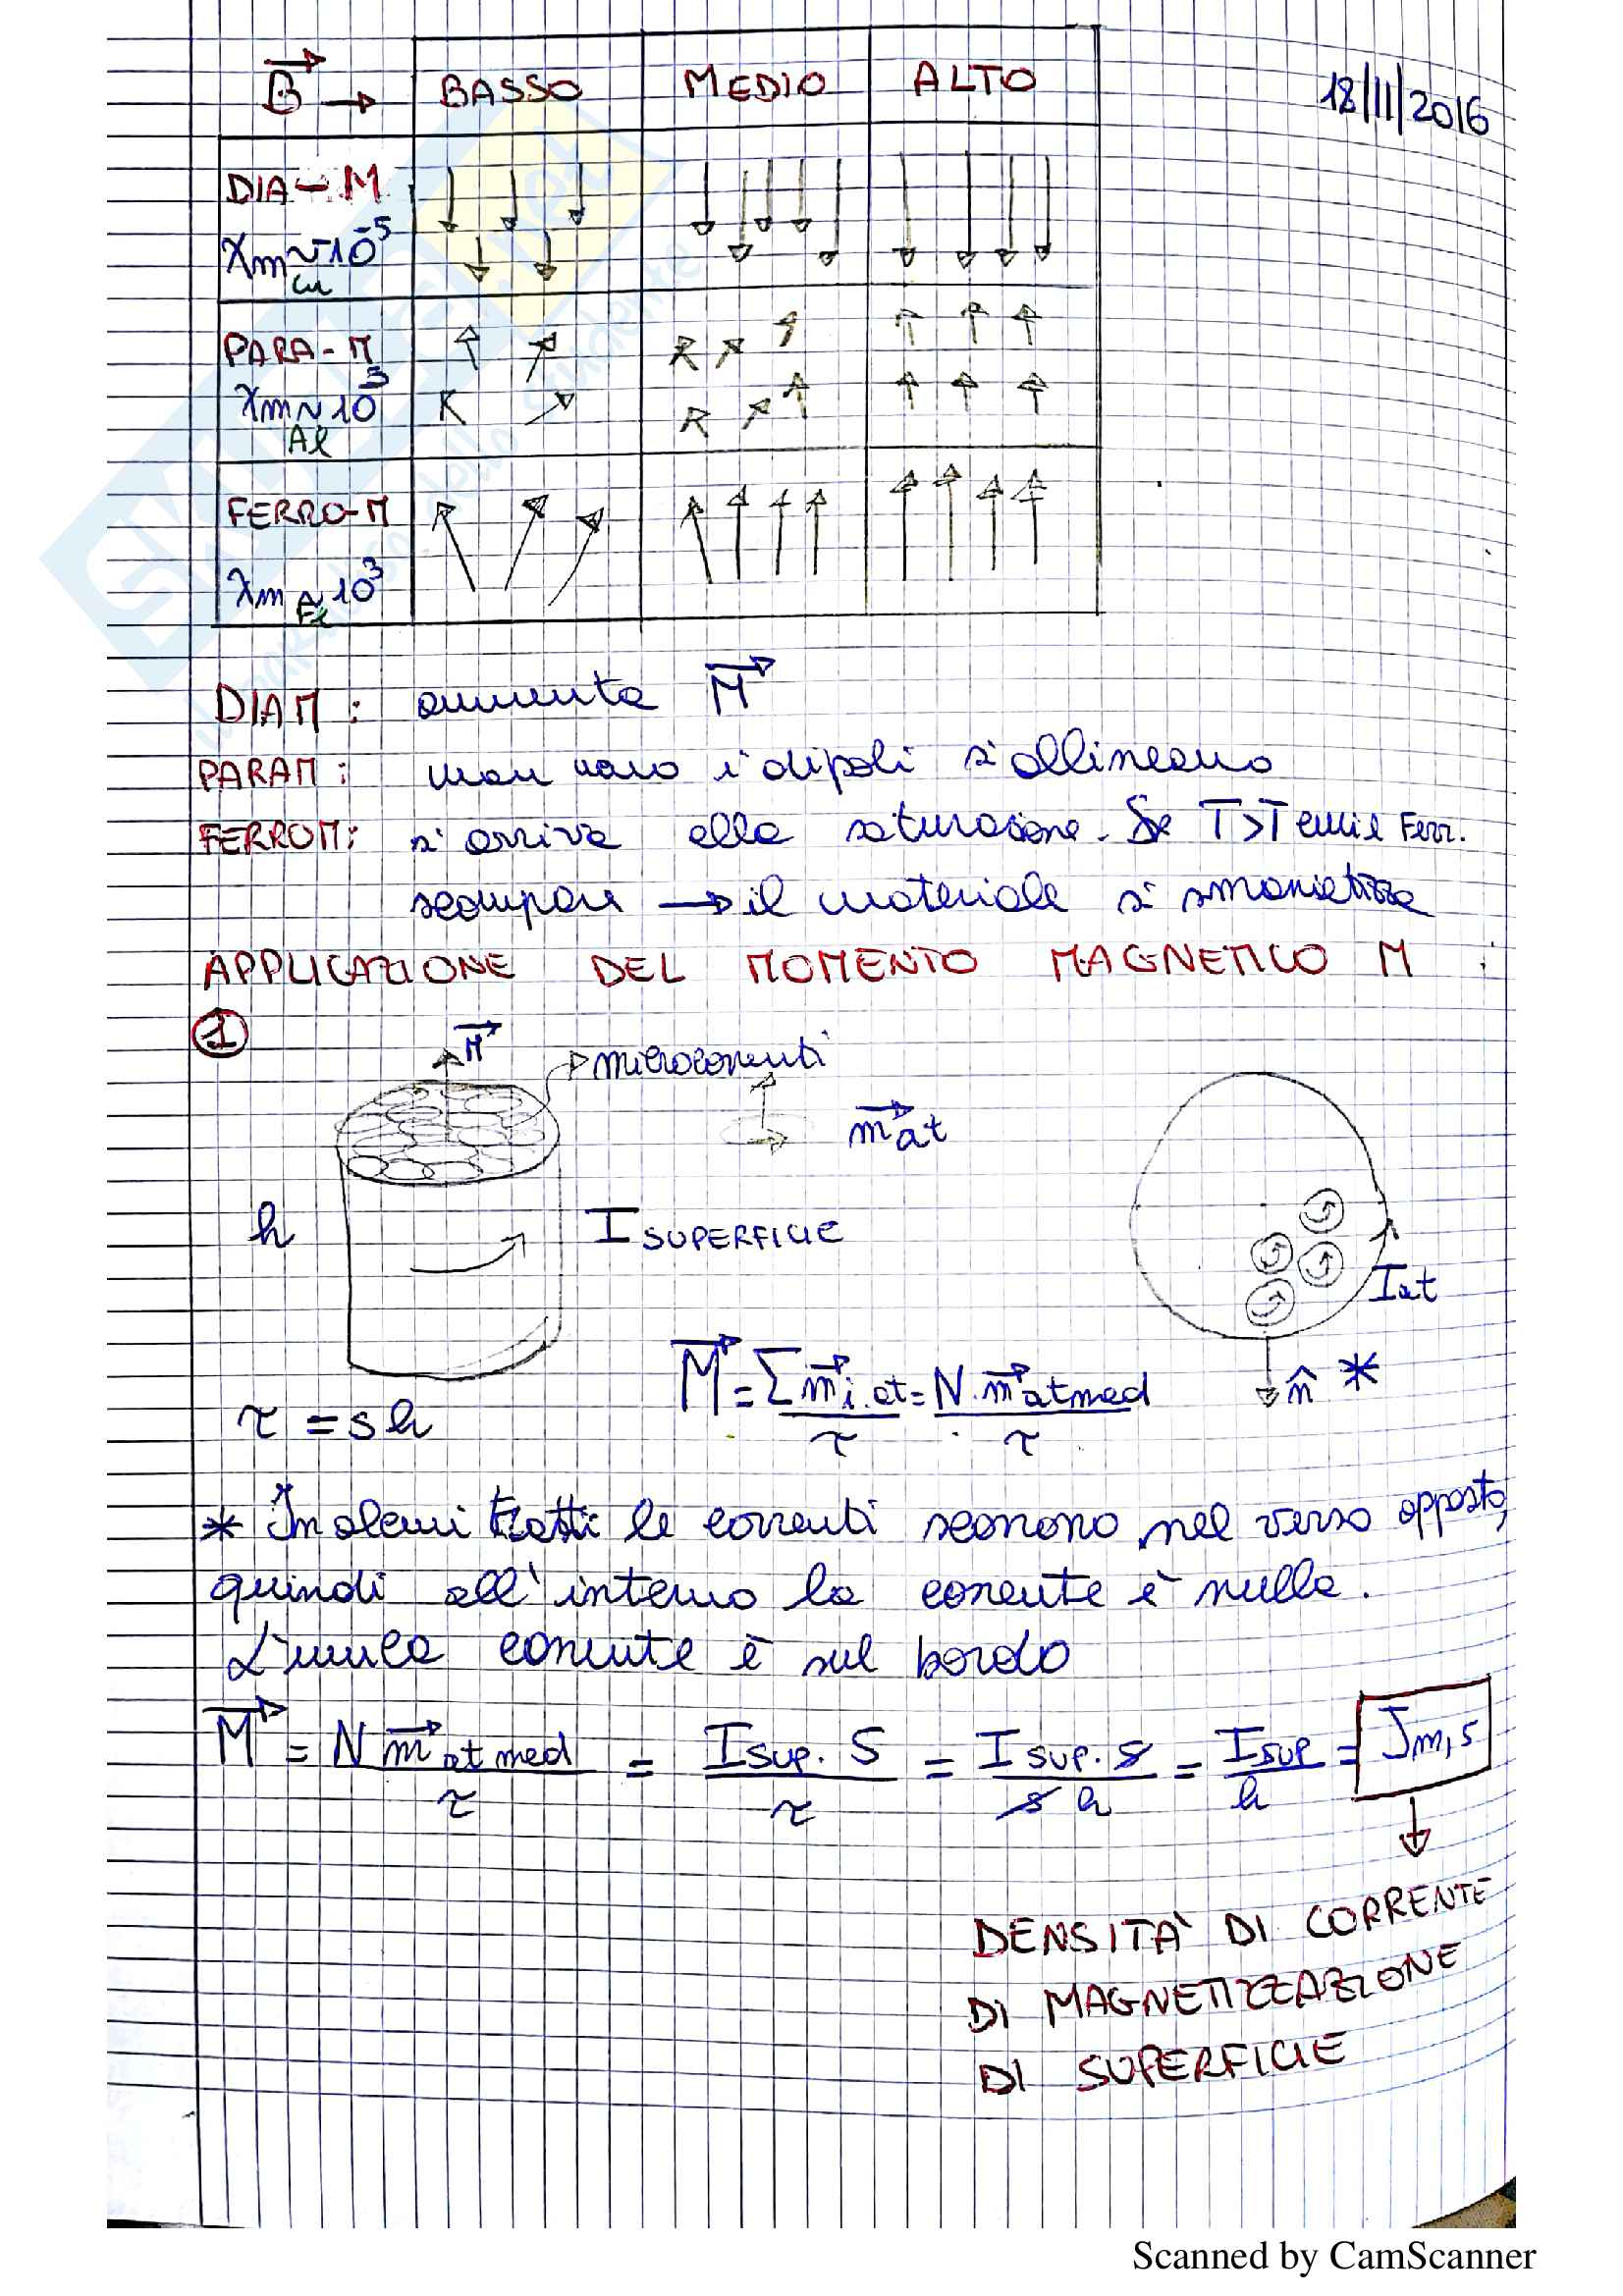 B → BASSO MEDIO ALTO
18/11/2016
DIA-M
χm ~ 10⁻⁵
Cu
PARA-M
χm ~ 10⁻⁵
Al
FERRO-M
χm ~ 10³
Fe
DIAM: aumenta M
PARAM: man mano i dipoli si allineano
FERROM: si arriva alla saturazione. Se T>T curie Ferr.
scompare → il materiale si smagnetizza
APPLICAZIONE DEL MOMENTO MAGNETICO M :
1
M
microcorrenti
m at
h
I SUPERFICIE
I at
M = Σ m i.at / τ = N. m at med / τ
n̂ *
τ = s h
* In alcuni tratti le correnti scorrono nel verso opposto,
quindi all'interno la corrente è nulla.
L'unica corrente è sul bordo
M = N m at med / τ = I sup. S / τ = I sup. s / s h = I sup / h = J m,s
DENSITÀ DI CORRENTE
DI MAGNETIZZAZIONE
DI SUPERFICIE
Scanned by CamScanner